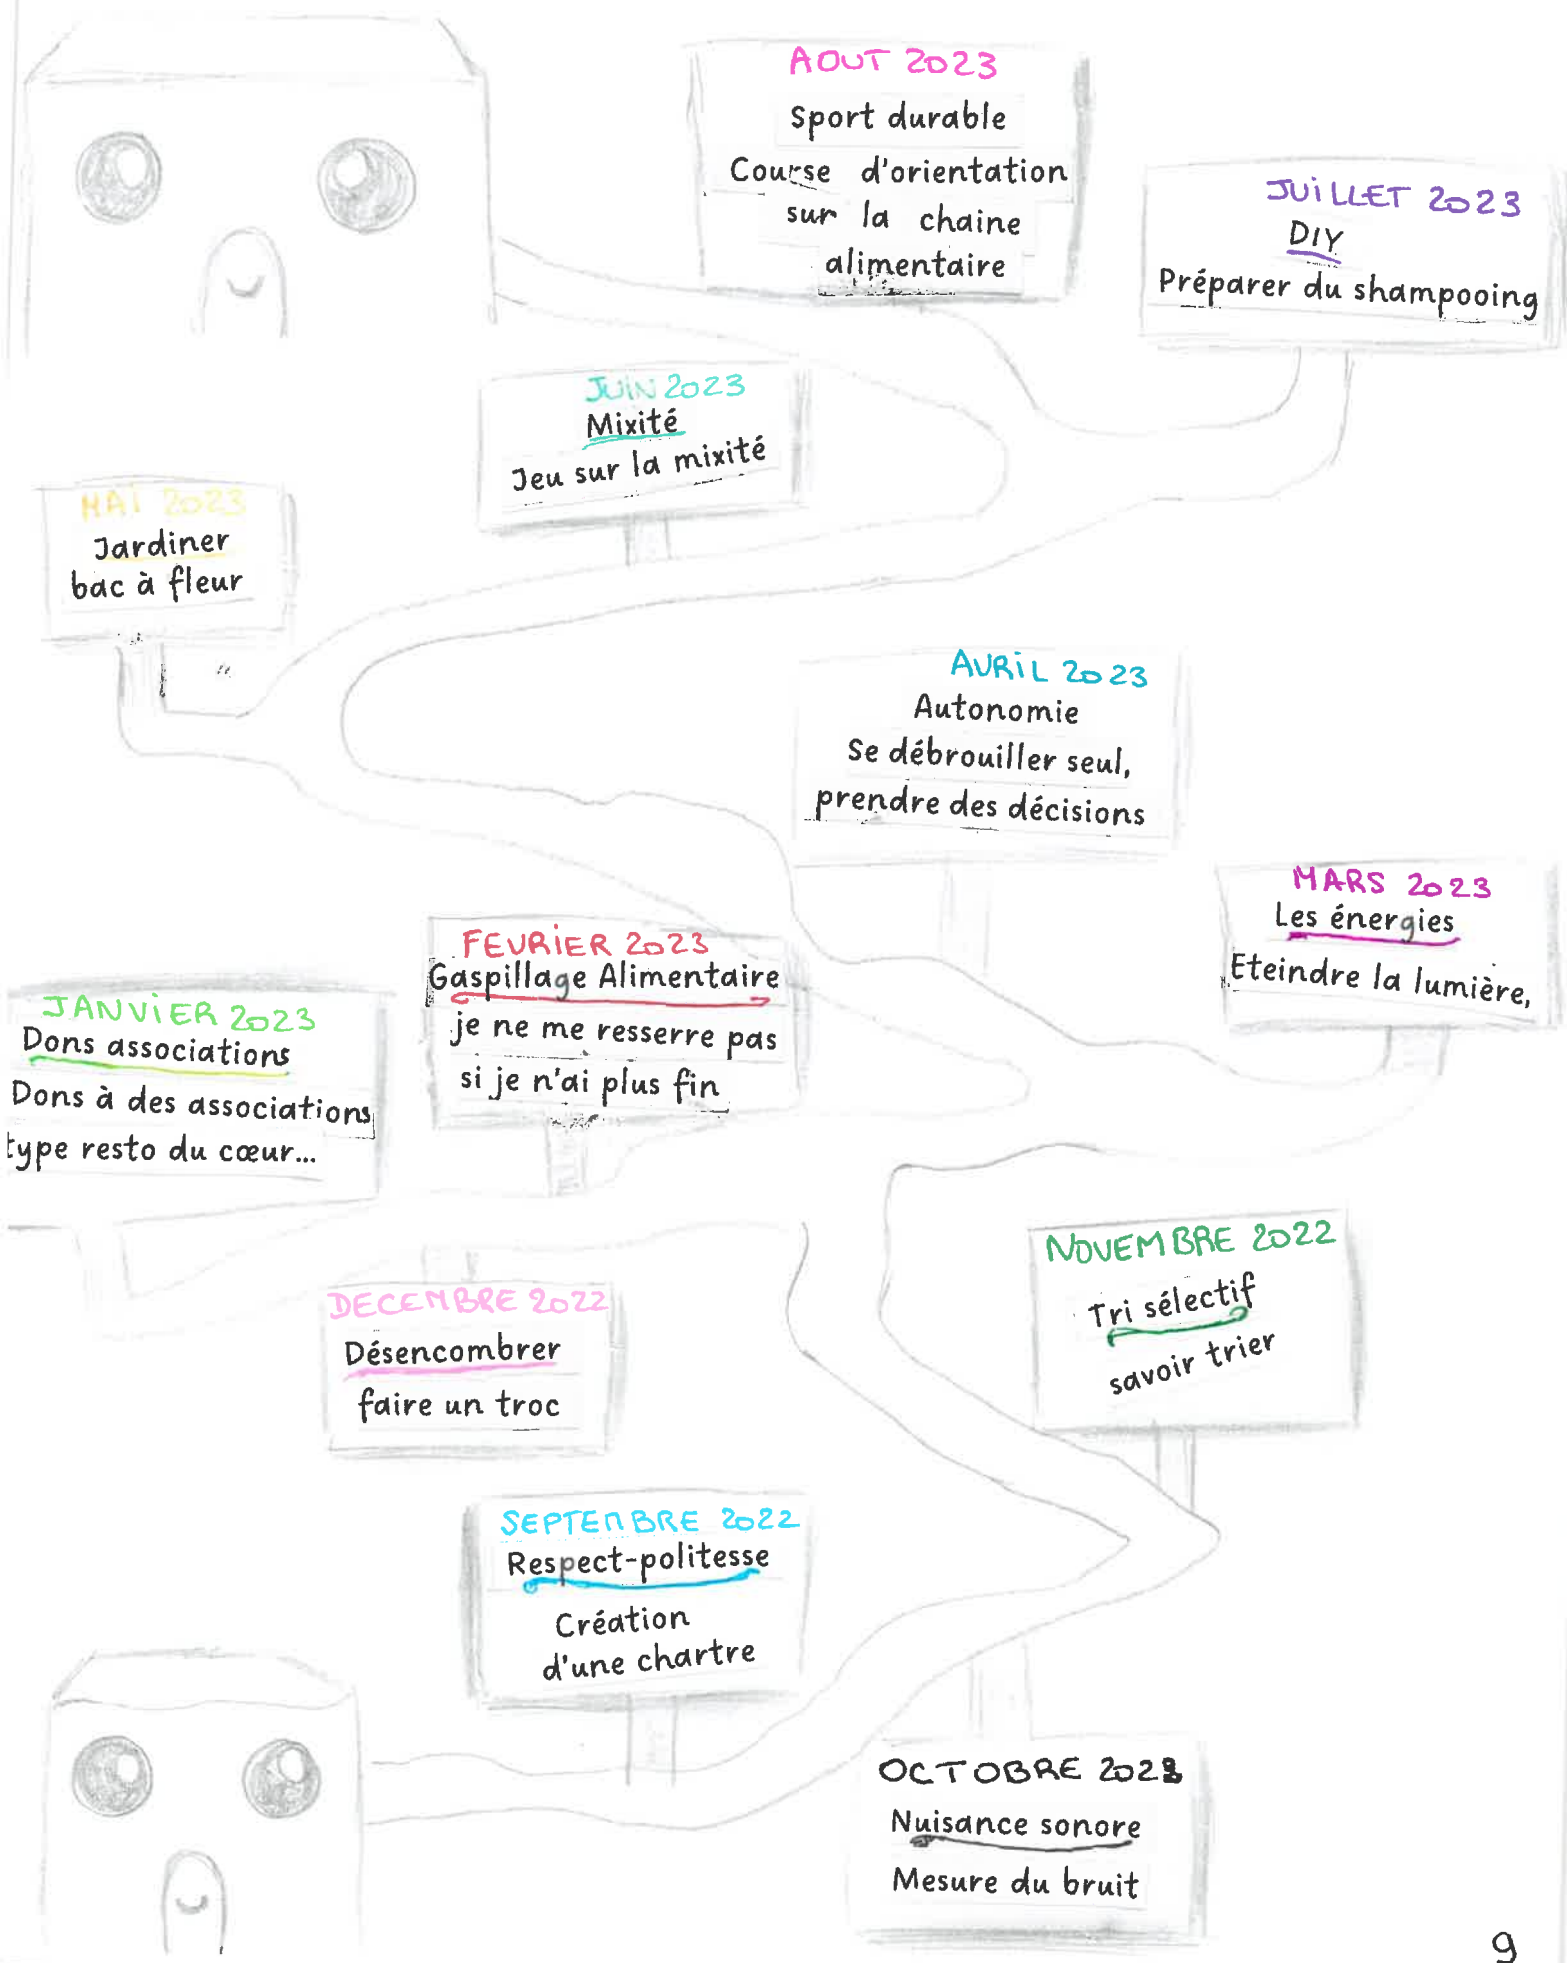 AOUT 2023
Sport durable
Course d'orientation
sur la chaine
alimentaire
JUiLLET 2023
DIY
Préparer du shampooing
JUIN 2023
Mixité
Jeu sur la mixité
MAi 2023
Jardiner
bac à fleur
AVRiL 2023
Autonomie
Se débrouiller seul,
prendre des décisions
MARS 2023
Les énergies
Eteindre la lumière,
FEVRiER 2023
Gaspillage Alimentaire
je ne me resserre pas
si je n'ai plus fin
JANViER 2023
Dons associations
Dons à des associations
type resto du cœur...
DECEMBRE 2022
Désencombrer
faire un troc
NOVEMBRE 2022
Tri sélectif
savoir trier
SEPTEMBRE 2022
Respect-politesse
Création
d'une chartre
OCTOBRE 2022
Nuisance sonore
Mesure du bruit
9